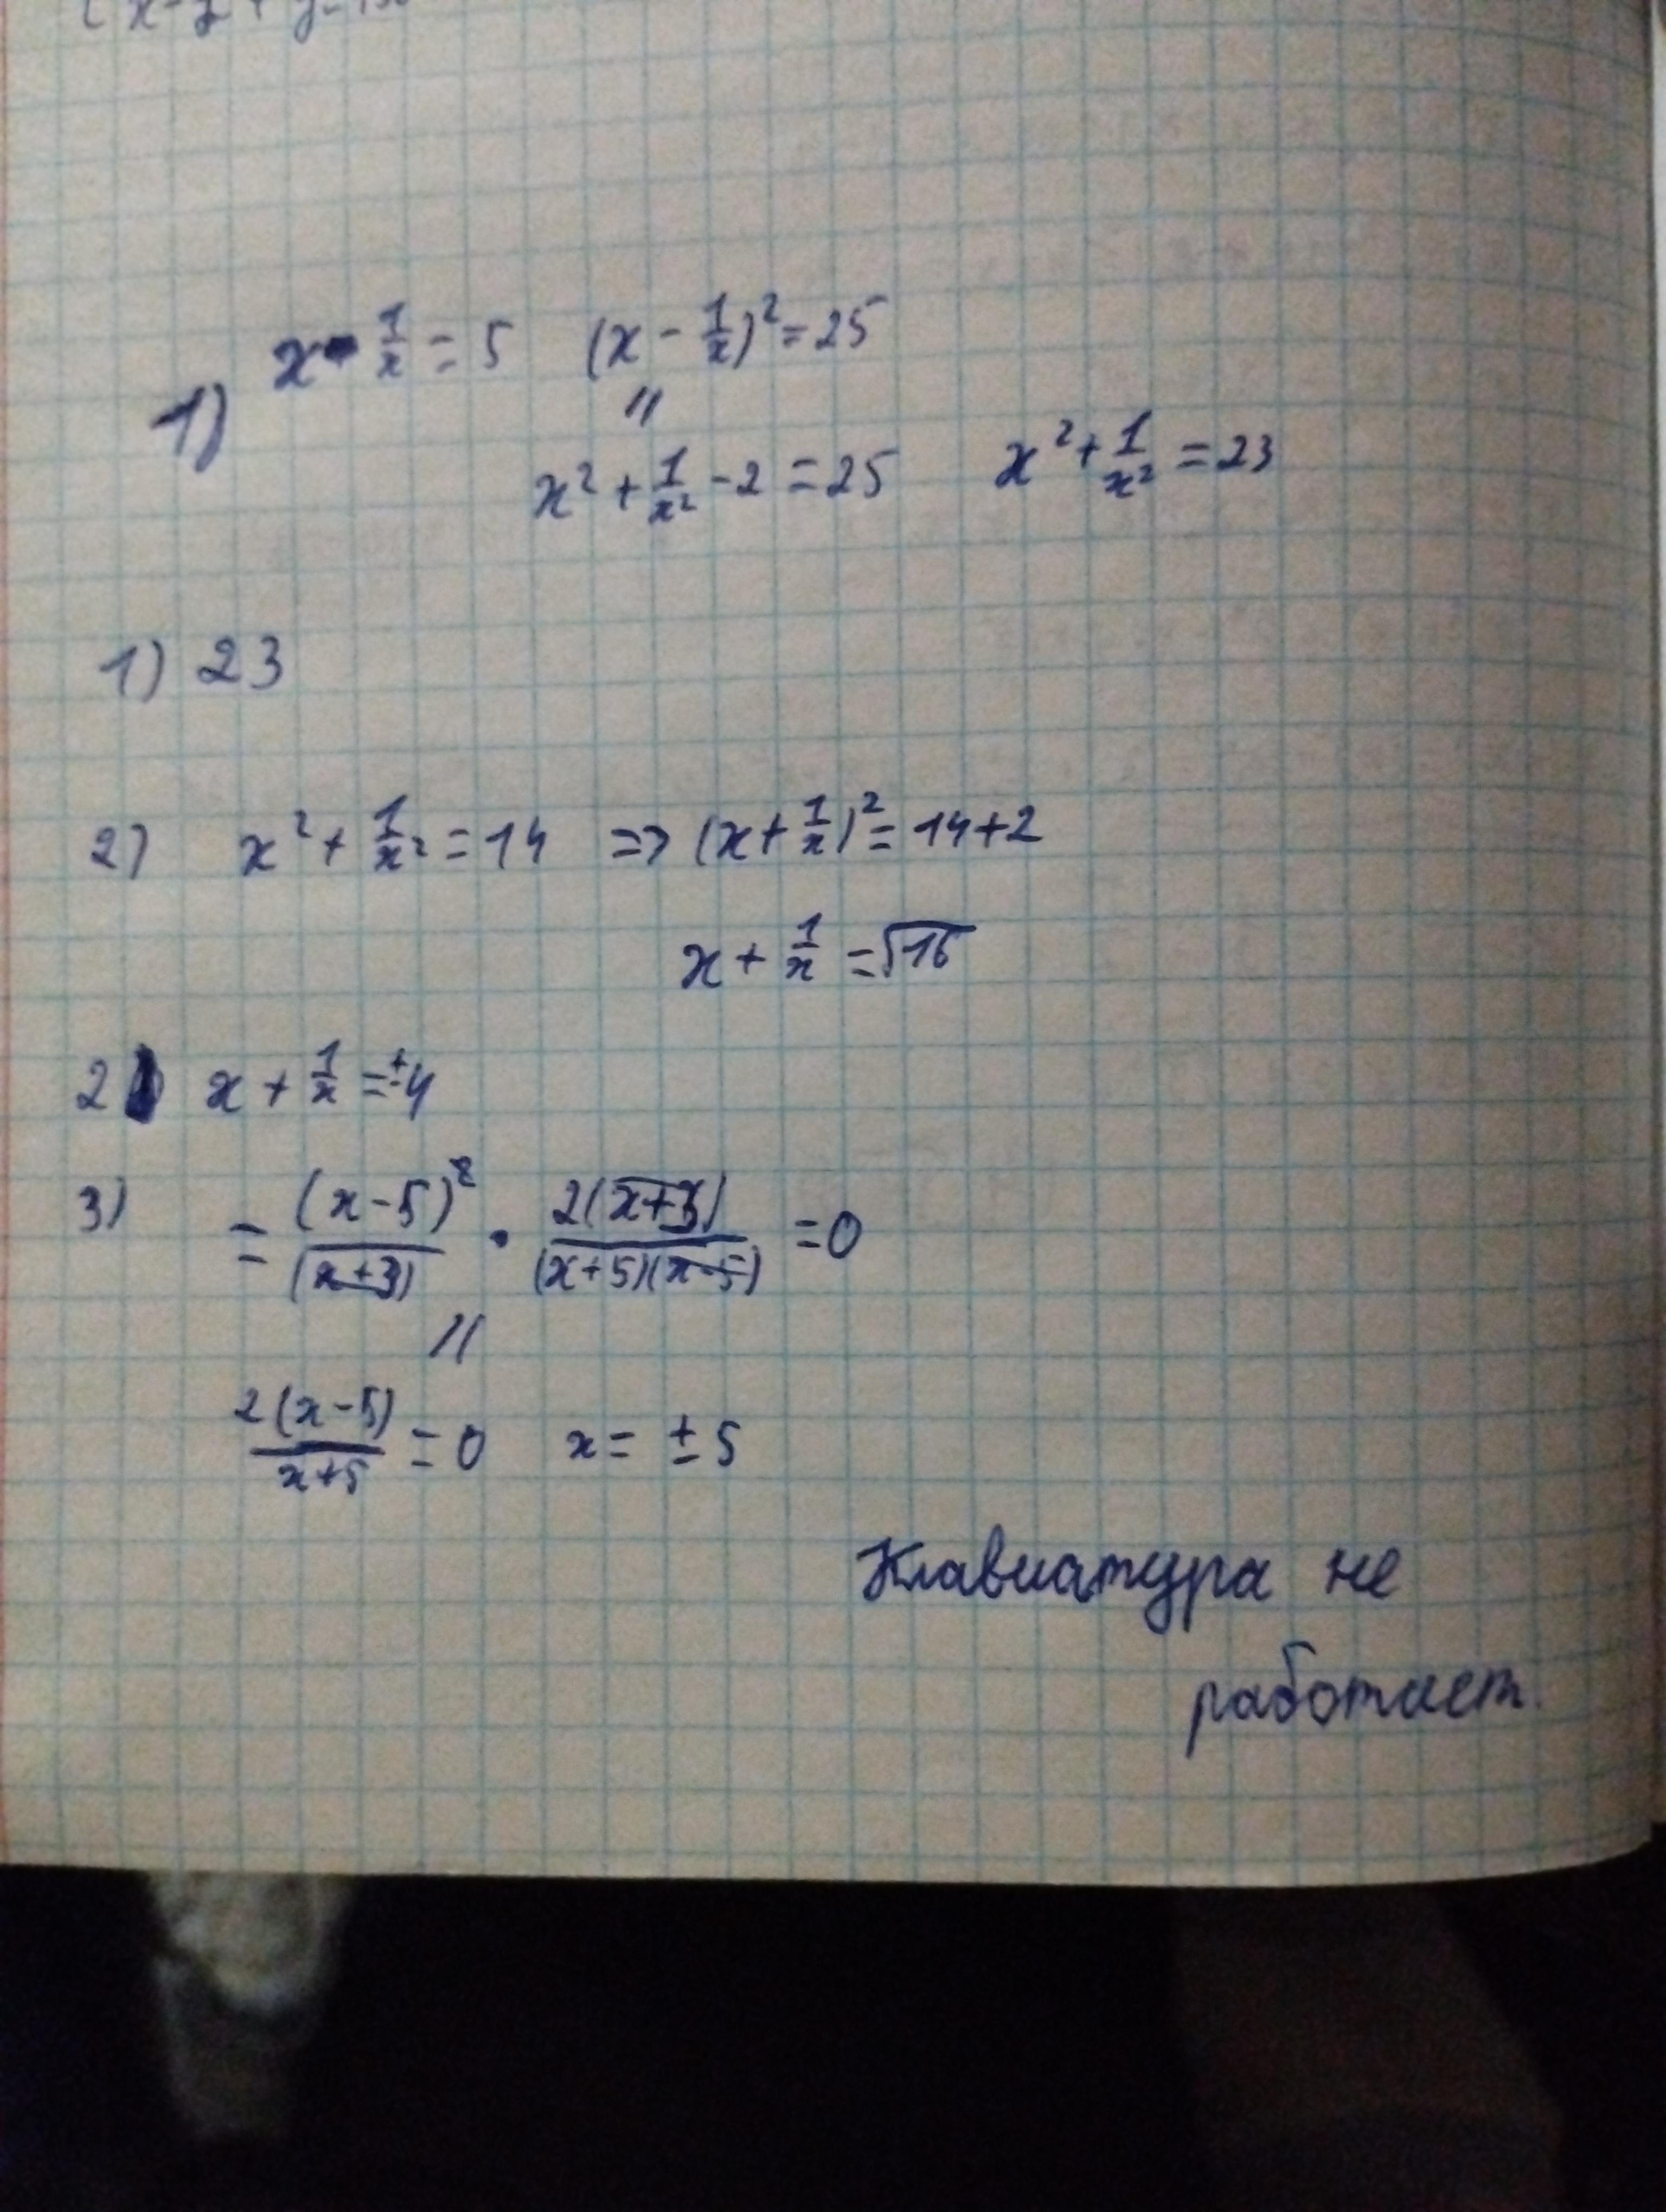 1) x - 1/x = 5 (x - 1/x)² = 25
||
x² + 1/x² - 2 = 25 x² + 1/x² = 23
1) 23
2) x² + 1/x² = 14 => (x + 1/x)² = 14+2
x + 1/x = √16
2) x + 1/x = ±4
3) = (x-5)²/(x+3) · 2(x+3)/(x+5)(x-5) = 0
||
2(x-5)/x+5 = 0 x = ±5
Клавиатура не
работает.